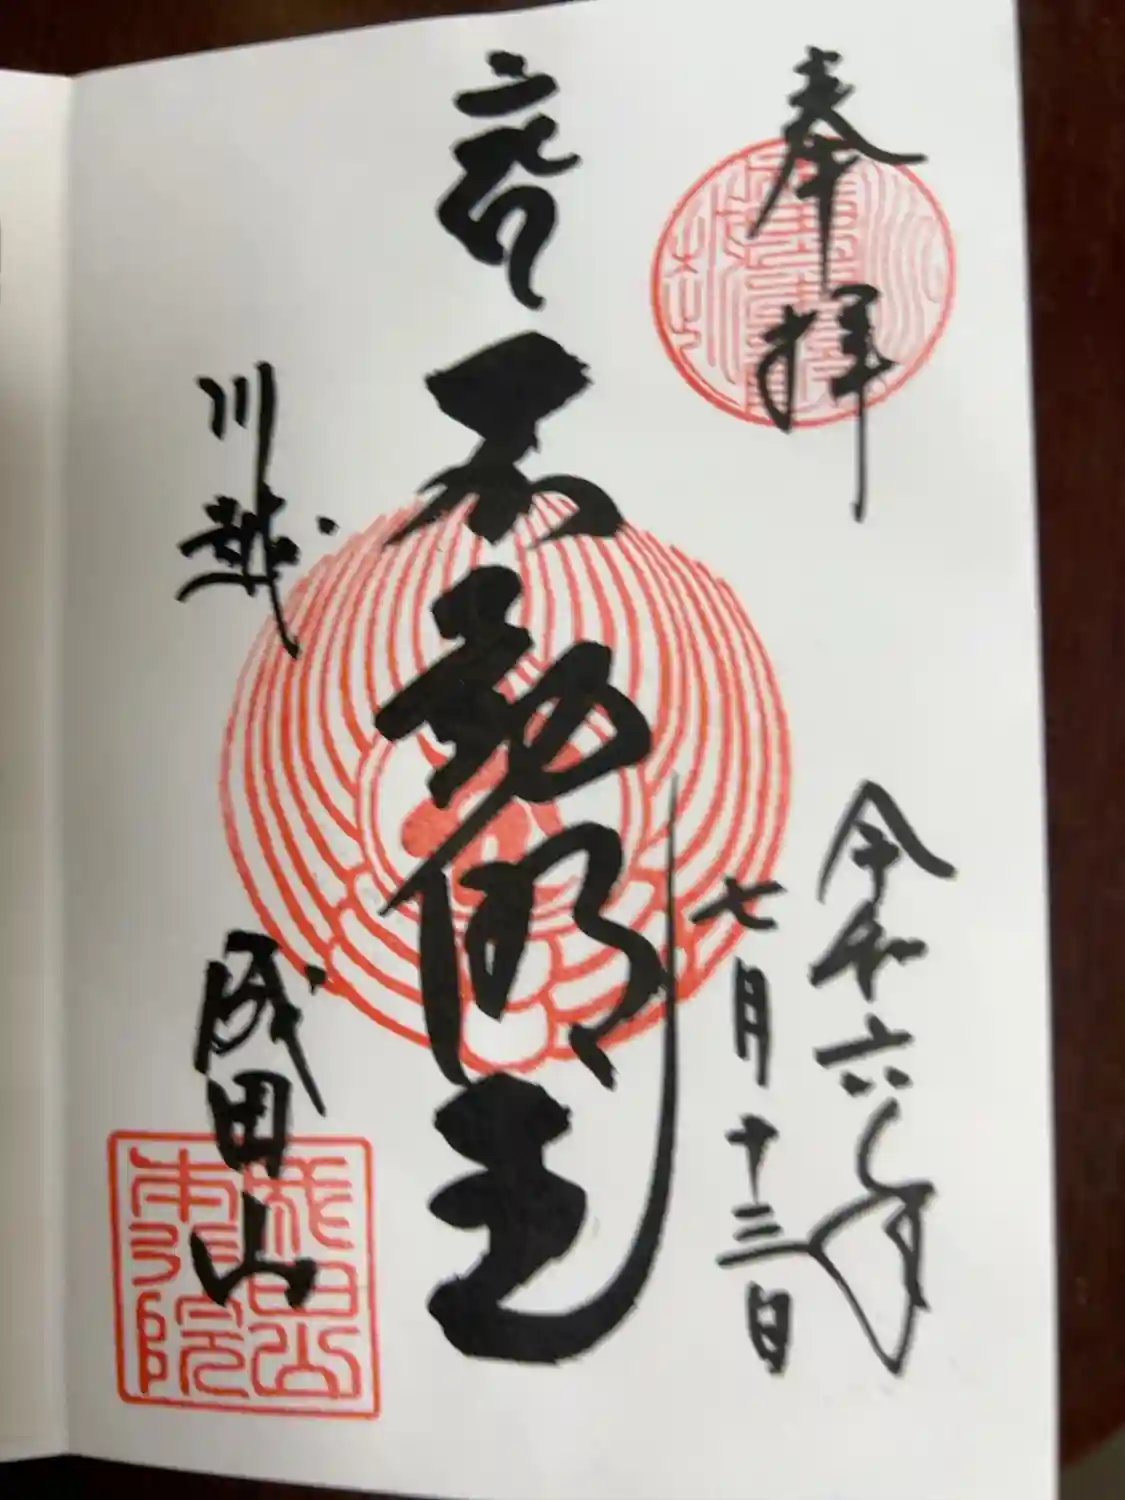 奉拝
令和六年
七月十三日
不動明王
川越
成田山
成田山
本行院